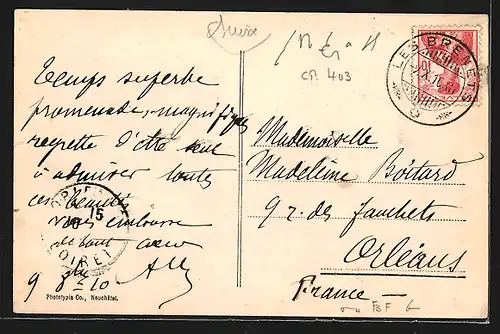 Suisse
CP. 403
LES BRENETS
Temps superbe
promenade, magnifique
regrette d'être seul
à admirer toutes
ces beautés
vous embrasse
de tout cœur
9 8bre 10
Mademoiselle
Madeleine Boitard
9 r. des fauchets
Orléans
France
LOIRET
Phototypie Co., Neuchâtel.